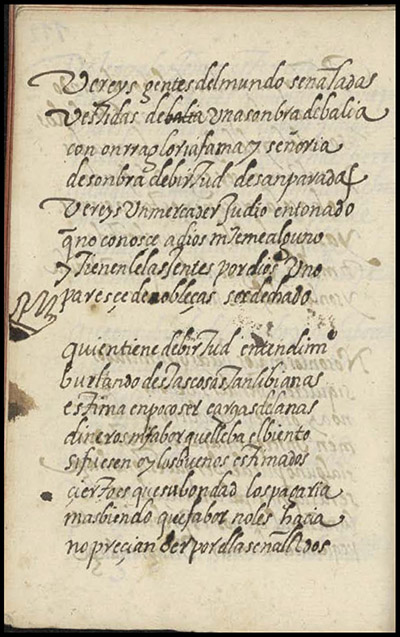 Vereys gentes del mundo señaladas
vestidas de balia una sonbra de balia
con onrra gloria fama y señoria
de sonbra de birtud desanparadas
Vereys Un mercader judio entonado
q̃ no conosce a dios ni teme alguno
y tienenle las Jentes por dios Uno
paresçe de nobleças ser dechado
quien tiene de birtud entendim̃
burlando destas cosas tan libianas
estima en poco ser cargas de lanas
dineros ni fabor que lleba el biento
si fuesen oy los buenos estimados
çierto es que su bondad los pagaria
mas biendo que fabor no les hacia
no preçian ser por ella señallados